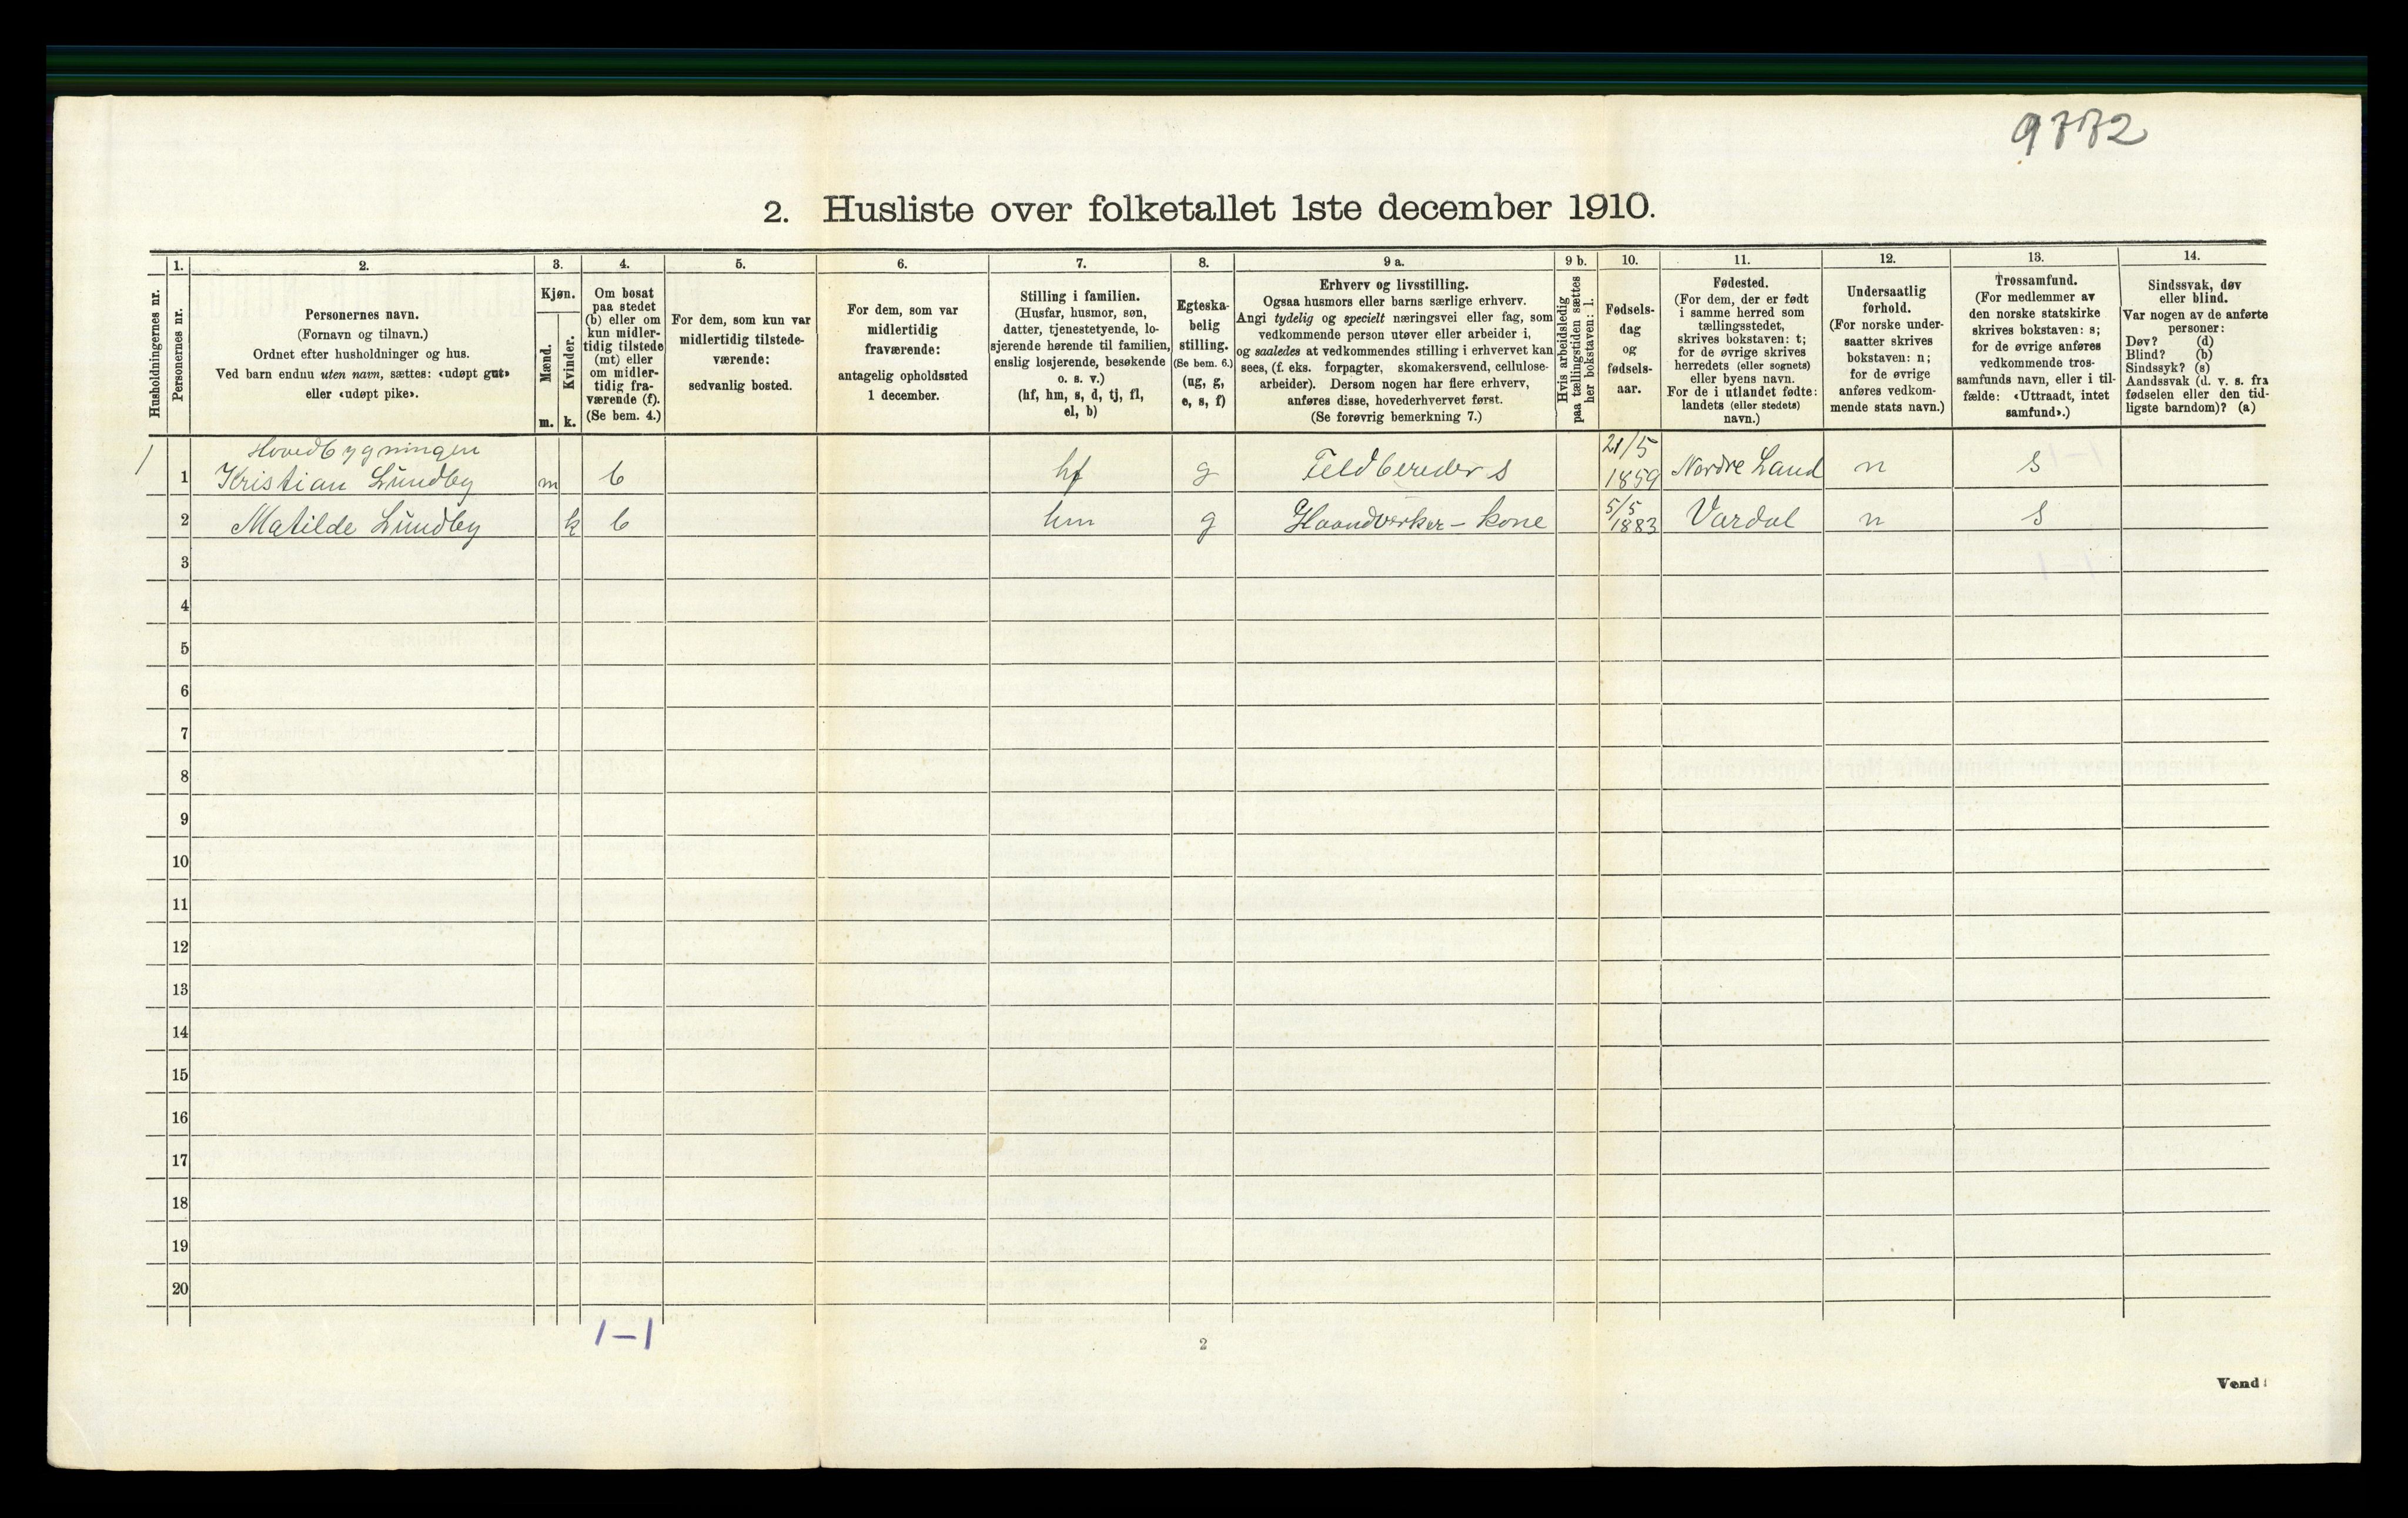 9772
2. Husliste over folketallet 1ste december 1910.
Husholdningernes nr.
1.
Personernes nr.
2.
Personernes navn.
(Fornavn og tilnavn.)
Ordnet efter husholdninger og hus.
Ved barn endnu uten navn, sættes: «udøpt gut»
eller «udøpt pike».
3.
Kjøn.
Mænd.
Kvinder.
m. k.
4.
Om bosat
paa stedet
(b) eller om
kun midler-
tidig tilstede
(mt) eller
om midler-
tidig fra-
værende (f).
(Se bem. 4.)
5.
For dem, som kun var
midlertidig tilstede-
værende:
sedvanlig bosted.
6.
For dem, som var
midlertidig
fraværende:
antagelig opholdssted
1 december.
7.
Stilling i familien.
(Husfar, husmor, søn,
datter, tjenestetyende, lo-
sjerende hørende til familien,
enslig losjerende, besøkende
o. s. v.)
(hf, hm, s, d, tj, fl,
el, b)
8.
Egteska-
belig
stilling.
(Se bem. 6.)
(ug, g,
e, s, f)
9 a.
Erhverv og livsstilling.
Ogsaa husmors eller barns særlige erhverv.
Angi tydelig og specielt næringsvei eller fag, som
vedkommende person utøver eller arbeider i,
og saaledes at vedkommendes stilling i erhvervet kan
sees, (f. eks. forpagter, skomakersvend, cellulose-
arbeider). Dersom nogen har flere erhverv,
anføres disse, hovederhvervet først.
(Se forøvrig bemerkning 7.)
9 b.
Hvis arbeidsledig
paa tællingstiden sættes
her bokstaven: l.
10.
Fødsels-
dag
og
fødsels-
aar.
11.
Fødested.
(For dem, der er født
i samme herred som
tællingsstedet,
skrives bokstaven: t;
for de øvrige skrives
herredets (eller sognets)
eller byens navn.
For de i utlandet fødte:
landets (eller stedets)
navn.)
12.
Undersaatlig
forhold.
(For norske under-
saatter skrives
bokstaven: n;
for de øvrige
anføres vedkom-
mende stats navn.)
13.
Trossamfund.
(For medlemmer av
den norske statskirke
skrives bokstaven: s;
for de øvrige anføres
vedkommende tros-
samfunds navn, eller i til-
fælde: «Uttraadt, intet
samfund».)
14.
Sindssvak, døv
eller blind.
Var nogen av de anførte
personer:
Døv? (d)
Blind? (b)
Sindssyk? (s)
Aandssvak (d. v. s. fra
fødselen eller den tid-
ligste barndom)? (a)
Hovedbygningen
1 1 Kristian Lundby m b hf g Feldbereder s 21/5 1859 Nordre Land n s
2 Matilde Lundby k b hm g Haandverker - kone 5/5 1883 Vardal n s
3
4
5
6
7
8
9
10
11
12
13
14
15
16
17
18
19
20
1-1
2
Vend!